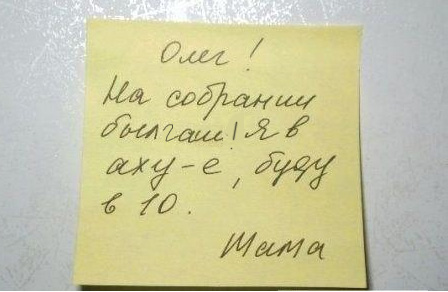 Олег!
На собрании
Я в
аху-е, буду
в 10.
Мама